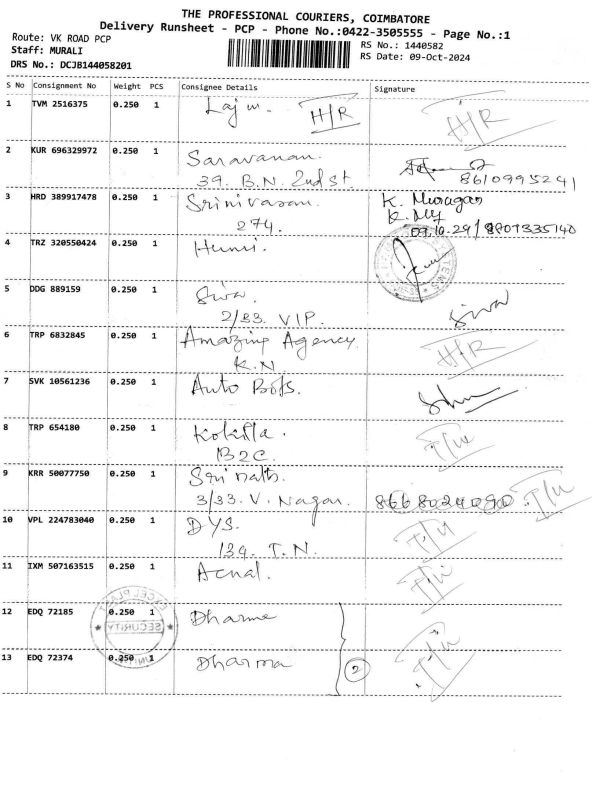 THE PROFESSIONAL COURIERS, COIMBATORE
Delivery Runsheet - PCP - Phone No.:0422-3505555 - Page No.:1
Route: VK ROAD PCP
Staff: MURALI
DRS No.: DCJB144058201
RS No.: 1440582
RS Date: 09-Oct-2024
S No Consignment No Weight PCS Consignee Details Signature
1 TVM 2516375 0.250 1 H/R H/R
2 KUR 696329972 0.250 1 Saravanan.
39. B.N. 2nd st. 8610995241
3 HRD 389917478 0.250 1 Srinivasan. K. Murugan
274. 09.10.24/
4 TRZ 320550424 0.250 1
5 DDG 889159 0.250 1 Siva. Siva
2/33. VIP.
6 TRP 6832845 0.250 1 Amazing Agency. H/R
K.N
7 SVK 10561236 0.250 1 Auto
8 TRP 654180 0.250 1 Kokilla.
B2C.
9 KRR 50077750 0.250 1 Sri nath.
3/33. V. Nagar. 8668024090
10 VPL 224783040 0.250 1 DYS.
134. T.N.
11 IXM 507163515 0.250 1
12 EDQ 72185 0.250 1 Dharma
SECURITY
13 EDQ 72374 0.250 1 Dharma 2